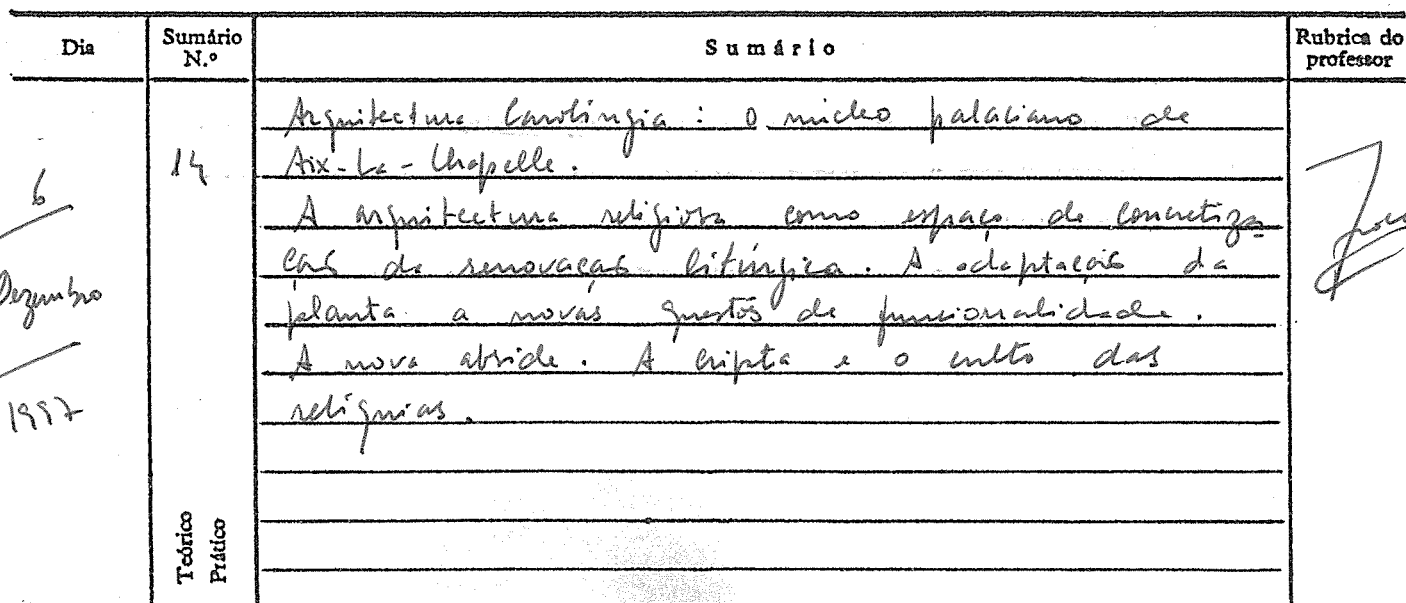 Dia
Sumário N.º
Sumário
Rubrica do professor
6
Dezembro
1997
14
Arquitectura Carolíngia : O núcleo palaciano de
Aix-La-Chapelle.
A arquitectura religiosa como espaço de concretiza
ção da renovação litúrgica. A adaptação da
planta a novas questões de funcionalidade.
A nova abside. A cripta e o culto das
relíquias.
Teórico
Prático